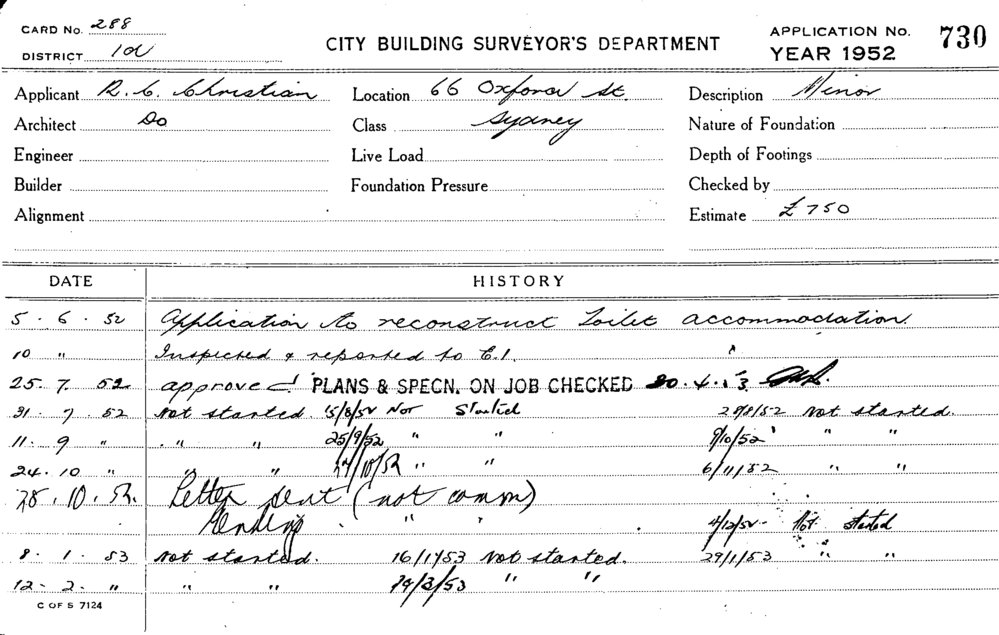 CARD No. 288
DISTRICT
CITY BUILDING SURVEYOR'S DEPARTMENT
APPLICATION No. 730
YEAR 1952
Applicant R. C. Christian Location 66 Oxford St. Description Minor
Architect Do Class Sydney Nature of Foundation
Engineer Live Load Depth of Footings
Builder Foundation Pressure Checked by
Alignment Estimate £750
DATE HISTORY
5 . 6 . 52 Application to reconstruct Toilet accommodation.
10 " Inspected & reported to C.I.
25. 7. 52 approved PLANS & SPECN. ON JOB CHECKED
31. 7. 52 Not started. 15/8/52 Not Started 28/8/52 Not started.
11. 9 " " " 25/9/52 " " 9/10/52 " "
24. 10 " " " " " 6/11/52 " "
28. 10. 52. Letter sent (not comm)
" 4/12/52 Not started
8. 1. 53 Not started. 16/1/53 Not started. 29/1/53 " "
12. 2. " " " /3/53 " "
C OF S 7124